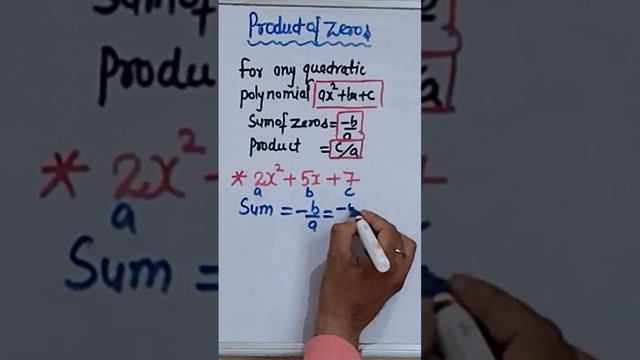 Product of Zeros
For any quadratic
polynomial ax²+bx+c
Sum of zeros = -b/a
Product = c/a
* 2x² + 5x + 7
a b c
Sum = -b/a = -